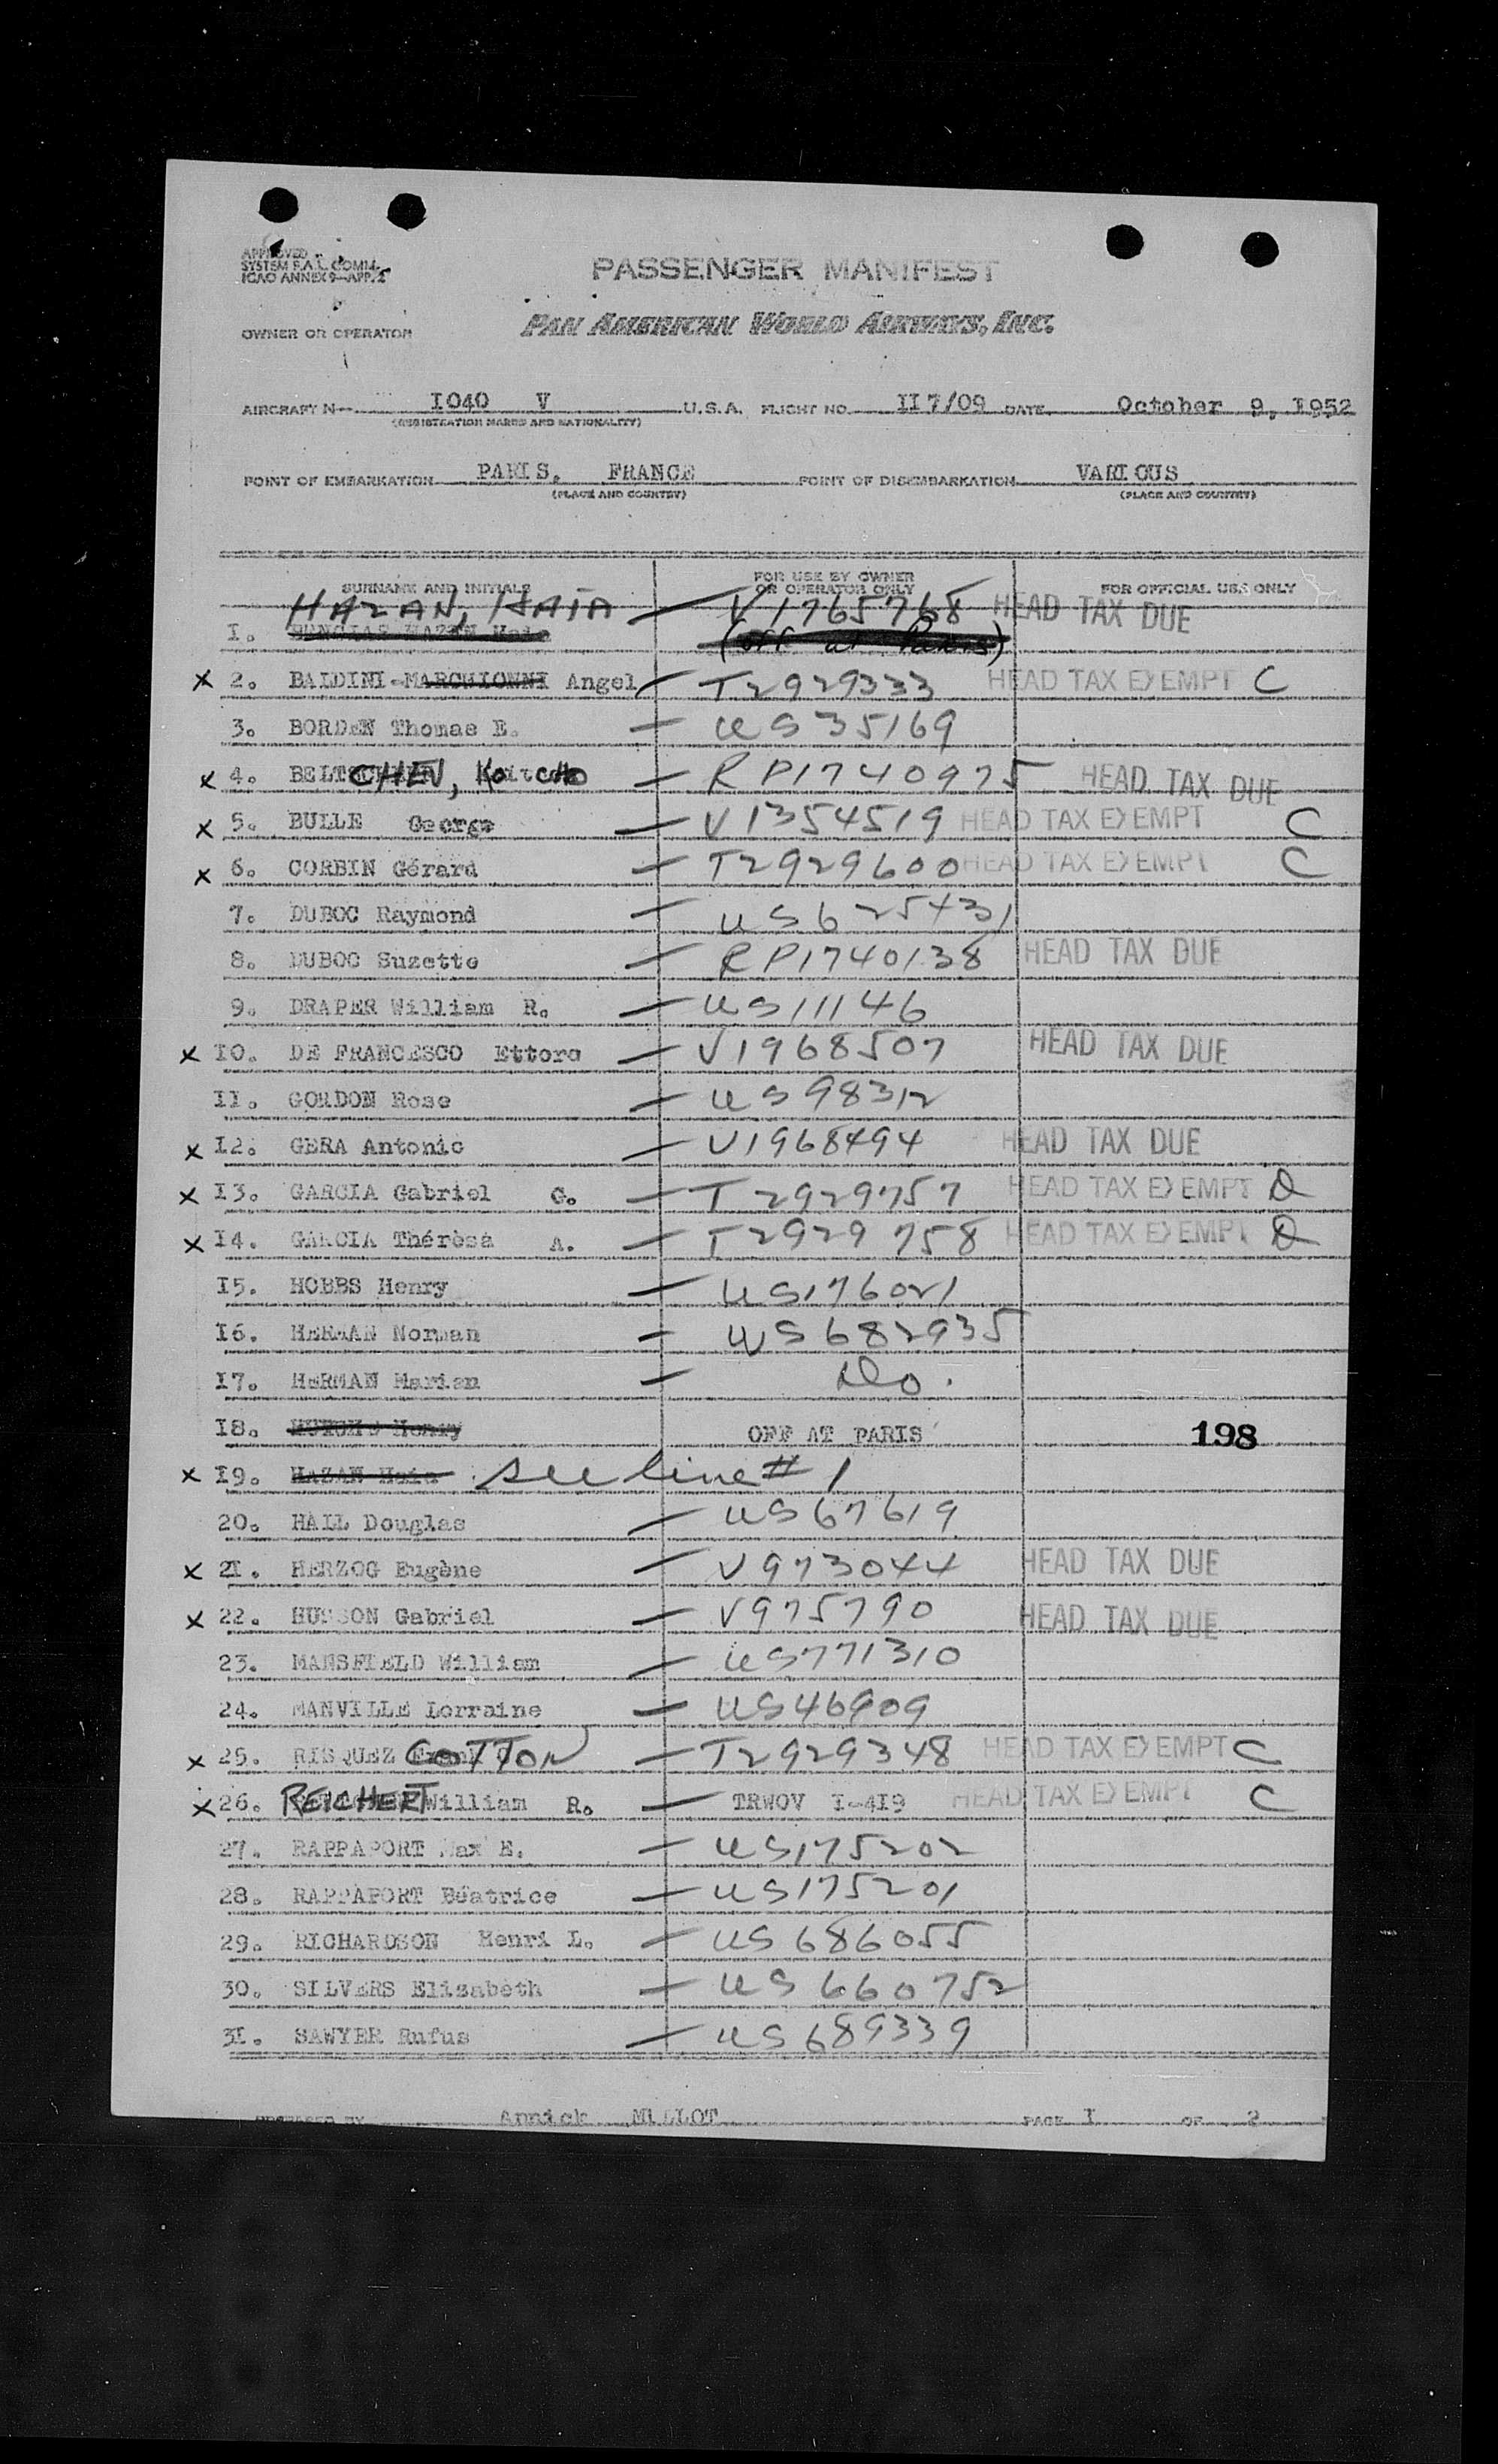 APPROVED
SYSTEM F.A.L. COMM.
ICAO ANNEX 9-APP. 2
PASSENGER MANIFEST
OWNER OR OPERATOR PAN AMERICAN WORLD AIRWAYS, INC.
AIRCRAFT N— I040 V U.S.A. FLIGHT NO. II7/09 DATE October 9, I952
(REGISTRATION MARKS AND NATIONALITY)
POINT OF EMBARKATION PARIS. FRANCE POINT OF DISEMBARKATION VARIOUS
(PLACE AND COUNTRY) (PLACE AND COUNTRY)
SURNAME AND INITIALS FOR USE BY OWNER OR OPERATOR ONLY FOR OFFICIAL USE ONLY
HAZAN, HAIA — V1765768 HEAD TAX DUE
I. (off at Paris)
x 2. BALDINI-MARCHIONNI Angel — T2929333 HEAD TAX EXEMPT C
3. BORDEN Thomas E. — US 35169
x 4. BELTCHEV, Kotcho — RP1740975 HEAD TAX DUE
x 5. BULLE George — V1354519 HEAD TAX EXEMPT C
x 6. CORBIN Gérard — T2929600 HEAD TAX EXEMPT C
7. DUBOC Raymond — US625431
8. DUBOC Suzette — RP1740138 HEAD TAX DUE
9. DRAPER William R. — US11146
x I0. DE FRANCESCO Ettore — V1968507 HEAD TAX DUE
II. GORDON Rose — US98312
x I2. GERA Antonio — V1968494 HEAD TAX DUE
x I3. GARCIA Gabriel G. — T2929757 HEAD TAX EXEMPT D
x I4. GARCIA Thérèsa A. — T2929758 HEAD TAX EXEMPT D
I5. HOBBS Henry — US176021
I6. HERMAN Norman — US682935
I7. HERMAN Marian — Do.
I8. Henry OFF AT PARIS 198
x I9. HAZAN Haia see line # 1
20. HALL Douglas — US67619
x 2I. HERZOG Eugène — V973044 HEAD TAX DUE
x 22. HUSSON Gabriel — V975790 HEAD TAX DUE
23. MANSFIELD William — US771310
24. MANVILLE Lorraine — US46909
x 25. RISQUEZ COTTON — T2929348 HEAD TAX EXEMPT C
x 26. REICHERT William R. — TRWOV I-4I9 HEAD TAX EXEMPT C
27. RAPPAPORT Max E. — US175202
28. RAPPAPORT Béatrice — US175201
29. RICHARDSON Henri L. — US686055
30. SILVERS Elisabeth — US660752
3I. SAWYER Rufus — US689339
PREPARED BY Annick MILLOT PAGE I OF 2